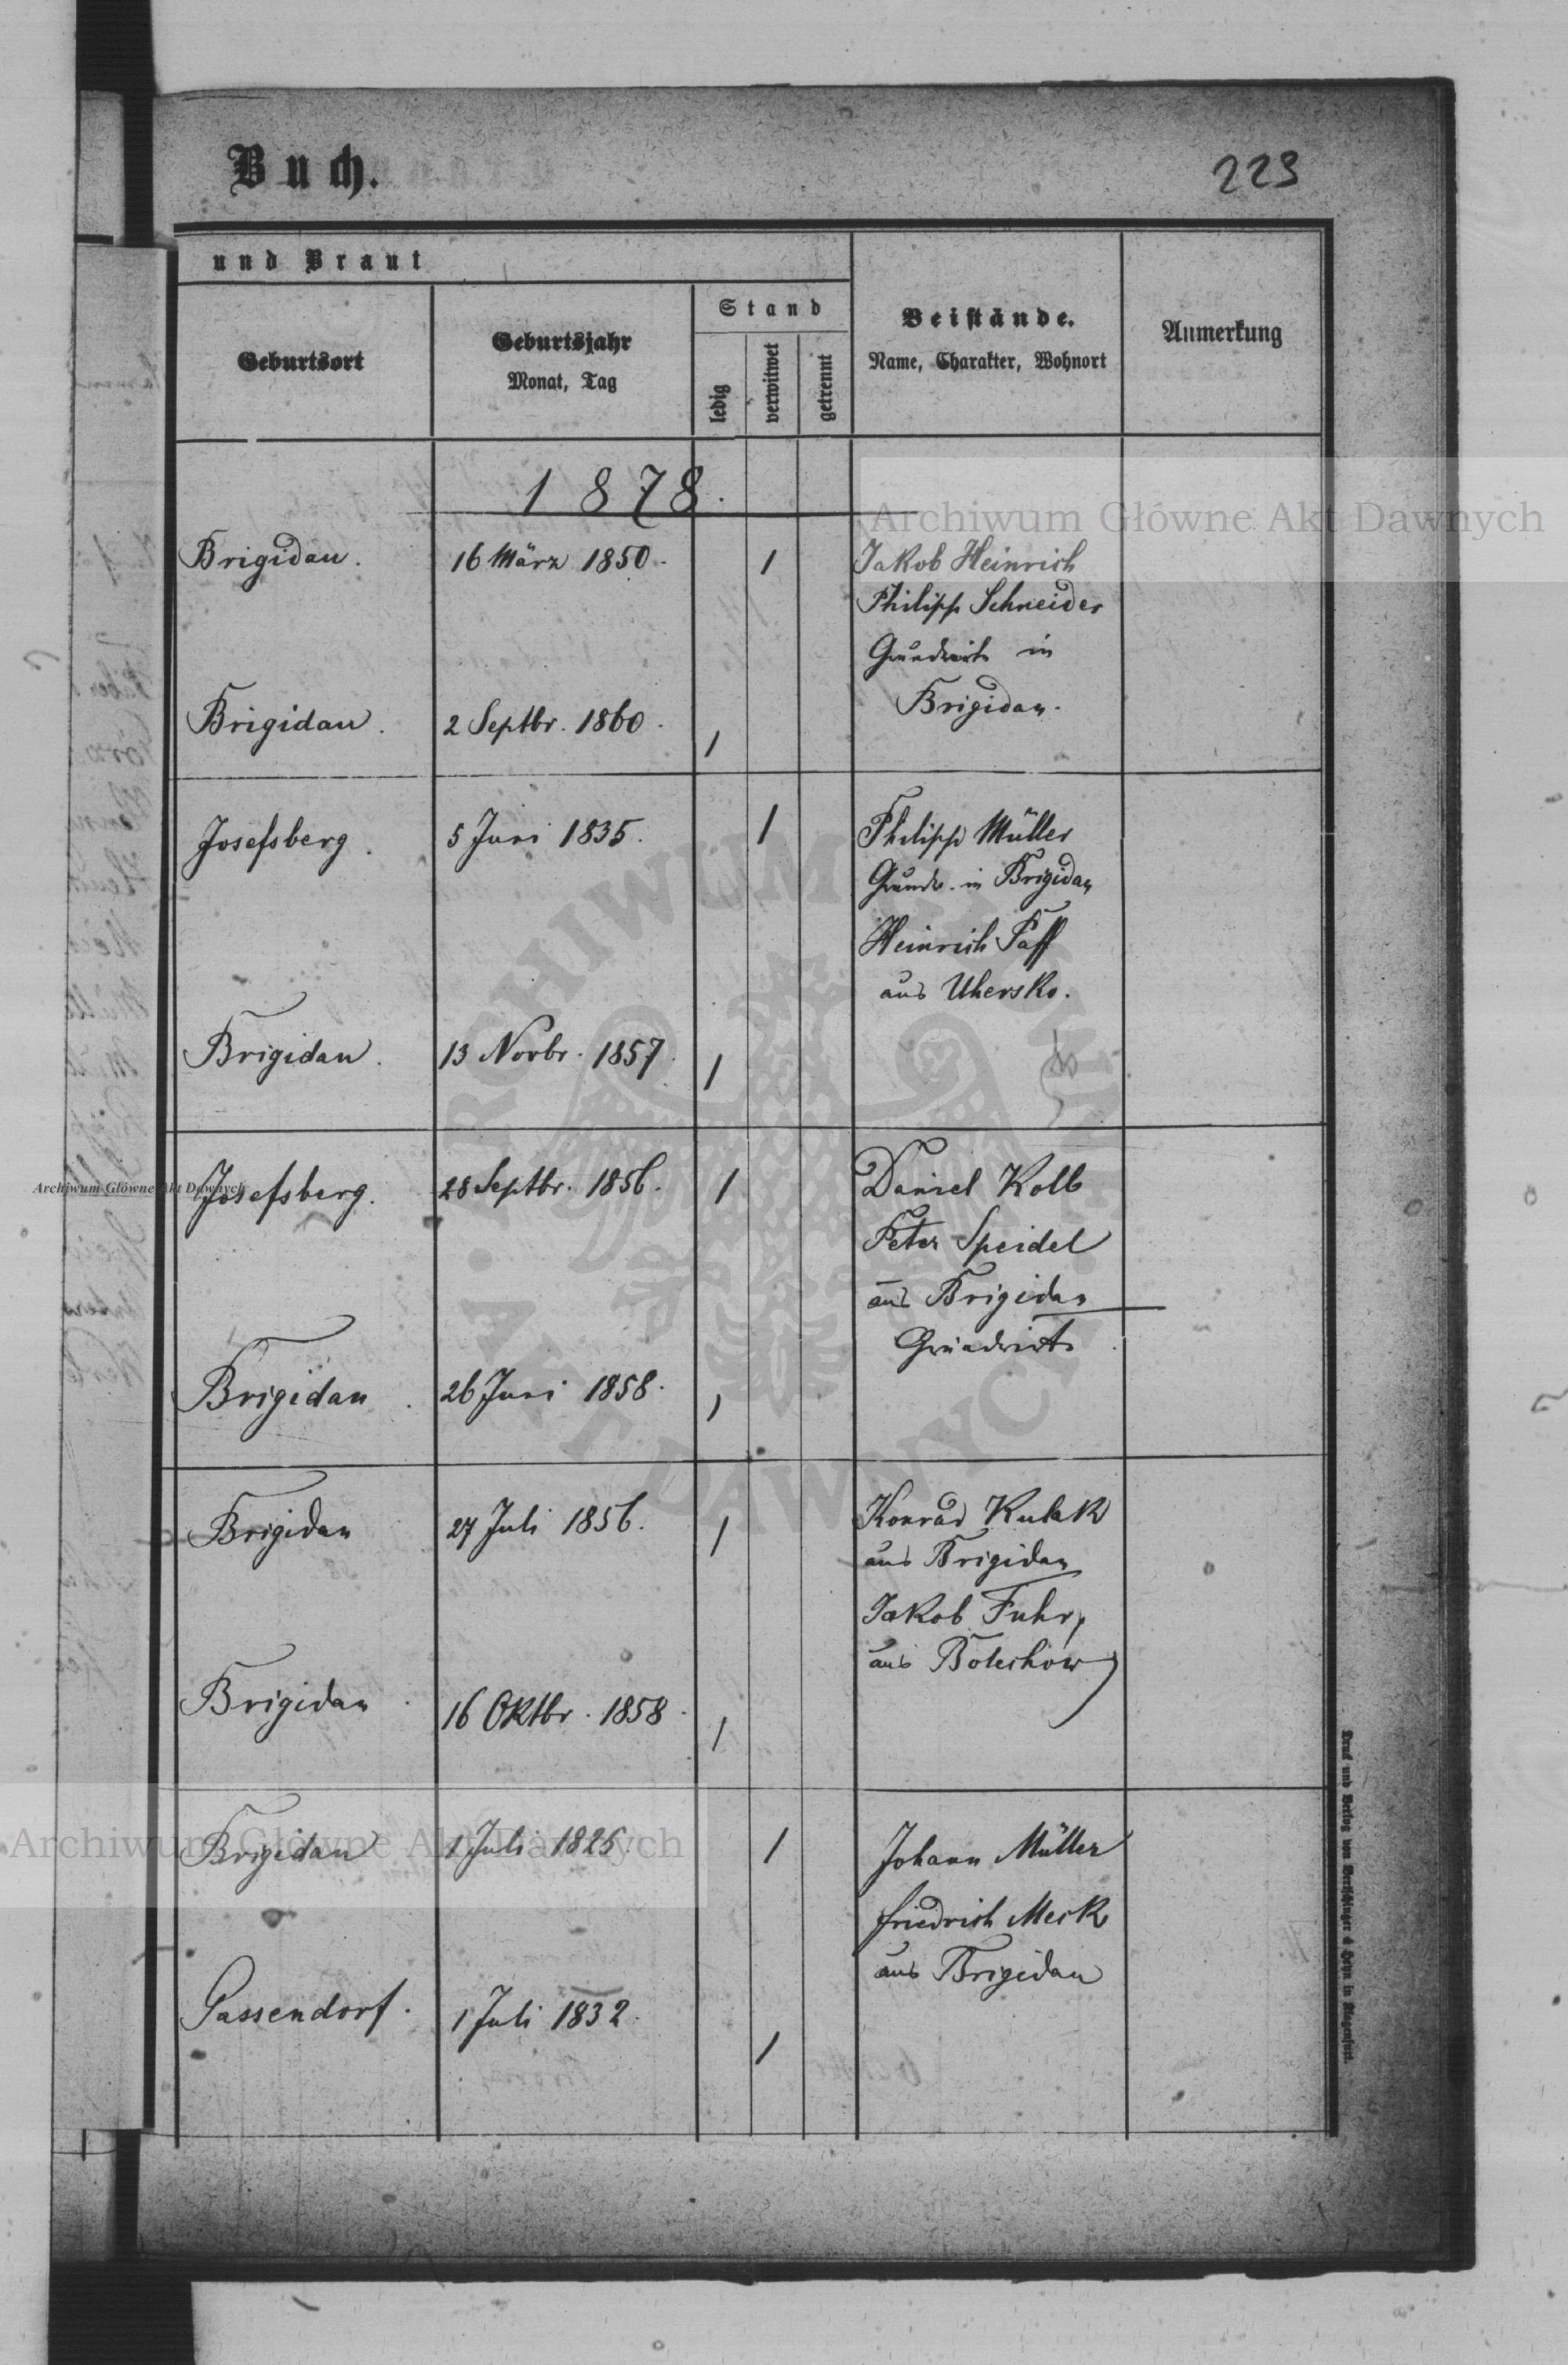 Buch.
223
und Braut
Geburtsort
Geburtsjahr
Monat, Tag
Stand
ledig
verwitwet
getrennt
Beistände.
Name, Charakter, Wohnort
Anmerkung
1878.
Archiwum Główne Akt Dawnych
Brigidau. 16 März 1850. 1 Jakob Heinrich
Philipp Schneider
Grundwirte in
Brigidau.
Brigidau. 2 Septbr. 1860. 1
Josefsberg. 5 Juni 1835. 1 Philipp Müller
Grundw. in Brigidau
Heinrich Paff
aus Uhersko.
Brigidau. 13 Novbr. 1857. 1
Josefsberg. 28 Septbr. 1856. 1 Daniel Kolb
Archiwum Główne Akt Dawnych
Peter Speidel
aus Brigidau
Grundwirte
Brigidau. 26 Juni 1858. 1
Brigidau 27 Juli 1856. 1 Konrad Kulak
aus Brigidau
Jakob Fuhr,
aus Bolechow
Brigidau. 16 Oktbr. 1858. 1
Brigidau 1 Juli 1825. 1 Johann Müller
Archiwum Główne Akt Dawnych
Friedrich Merk
aus Brigidau
Gassendorf. 1 Juli 1832. 1
ARCHIWUM GŁÓWNE AKT DAWNYCH
Druck und Verlag von Bertschinger & Heyn in Klagenfurt.